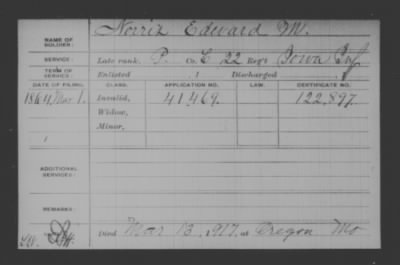 NAME OF SOLDIER: Norris Edward M.
SERVICE: Late rank, P. Co. C 22 Reg't Iowa Inf
TERM OF SERVICE: Enlisted , 1 Discharged ,
DATE OF FILING. CLASS. APPLICATION NO. LAW. CERTIFICATE NO.
1864, Mar 1. Invalid, 41469. 122,897.
Widow,
Minor,
ADDITIONAL SERVICES:
REMARKS:
Died Mar 13, 1917, at Oregon Mo